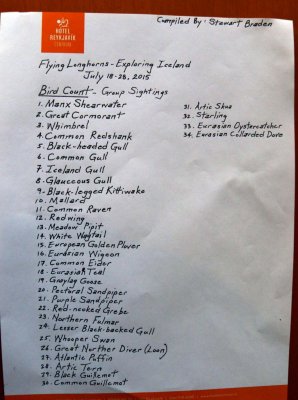 HÓTEL
REYKJAVÍK
CENTRUM
Compiled By: Stewart Braden
Flying Longhorns - Exploring Iceland
July 18-28, 2015
Bird Count - Group Sightings
1. Manx Shearwater
2. Great Cormorant
3. Whimbrel
4. Common Redshank
5. Black-headed Gull
6. Common Gull
7. Iceland Gull
8. Glauceous Gull
9. Black-legged Kittiwake
10. Mallard
11. Common Raven
12. Redwing
13. Meadow Pipit
14. White Wagtail
15. European Golden Plover
16. Eurasian Wigeon
17. Common Eider
18. Eurasian Teal
19. Graylag Goose
20. Pectoral Sandpiper
21. Purple Sandpiper
22. Red-necked Grebe
23. Northern Fulmar
24. Lesser Black-backed Gull
25. Whooper Swan
26. Great Norther Diver (Loon)
27. Atlantic Puffin
28. Artic Tern
29. Black Guillemot
30. Common Guillemot
31. Artic Skua
32. Starling
33. Eurasian Oystercatcher
34. Eurasian Collarded Dove